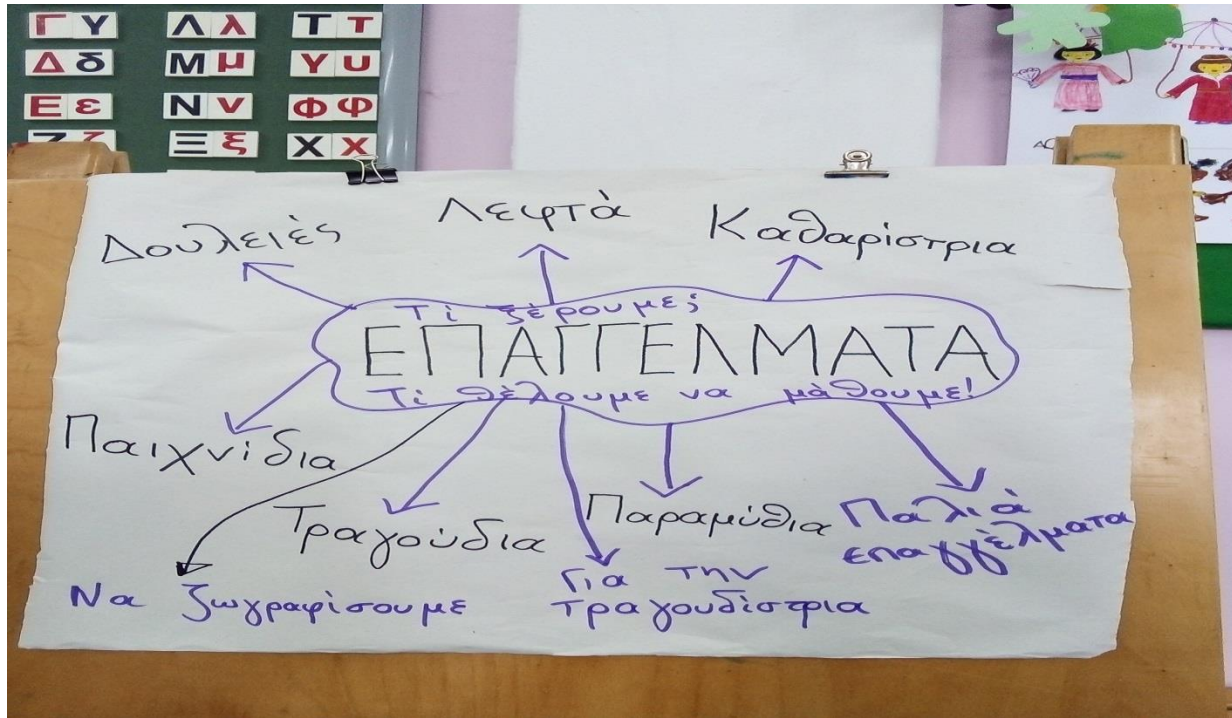 Γ Υ Λ λ Τ τ
Δ δ Μ μ Υ υ
Ε ε Ν ν Φ φ
Ζ ζ Ξ ξ Χ χ
Δουλειές
Λεφτά
Καθαρίστρια
Τί ξέρουμε;
ΕΠΑΓΓΕΛΜΑΤΑ
Τί θέλουμε να μάθουμε!
Παιχνίδια
Τραγούδια
Παραμύθια
Παλιά
επαγγέλματα
Να ζωγραφίσουμε
Για την
τραγουδίστρια